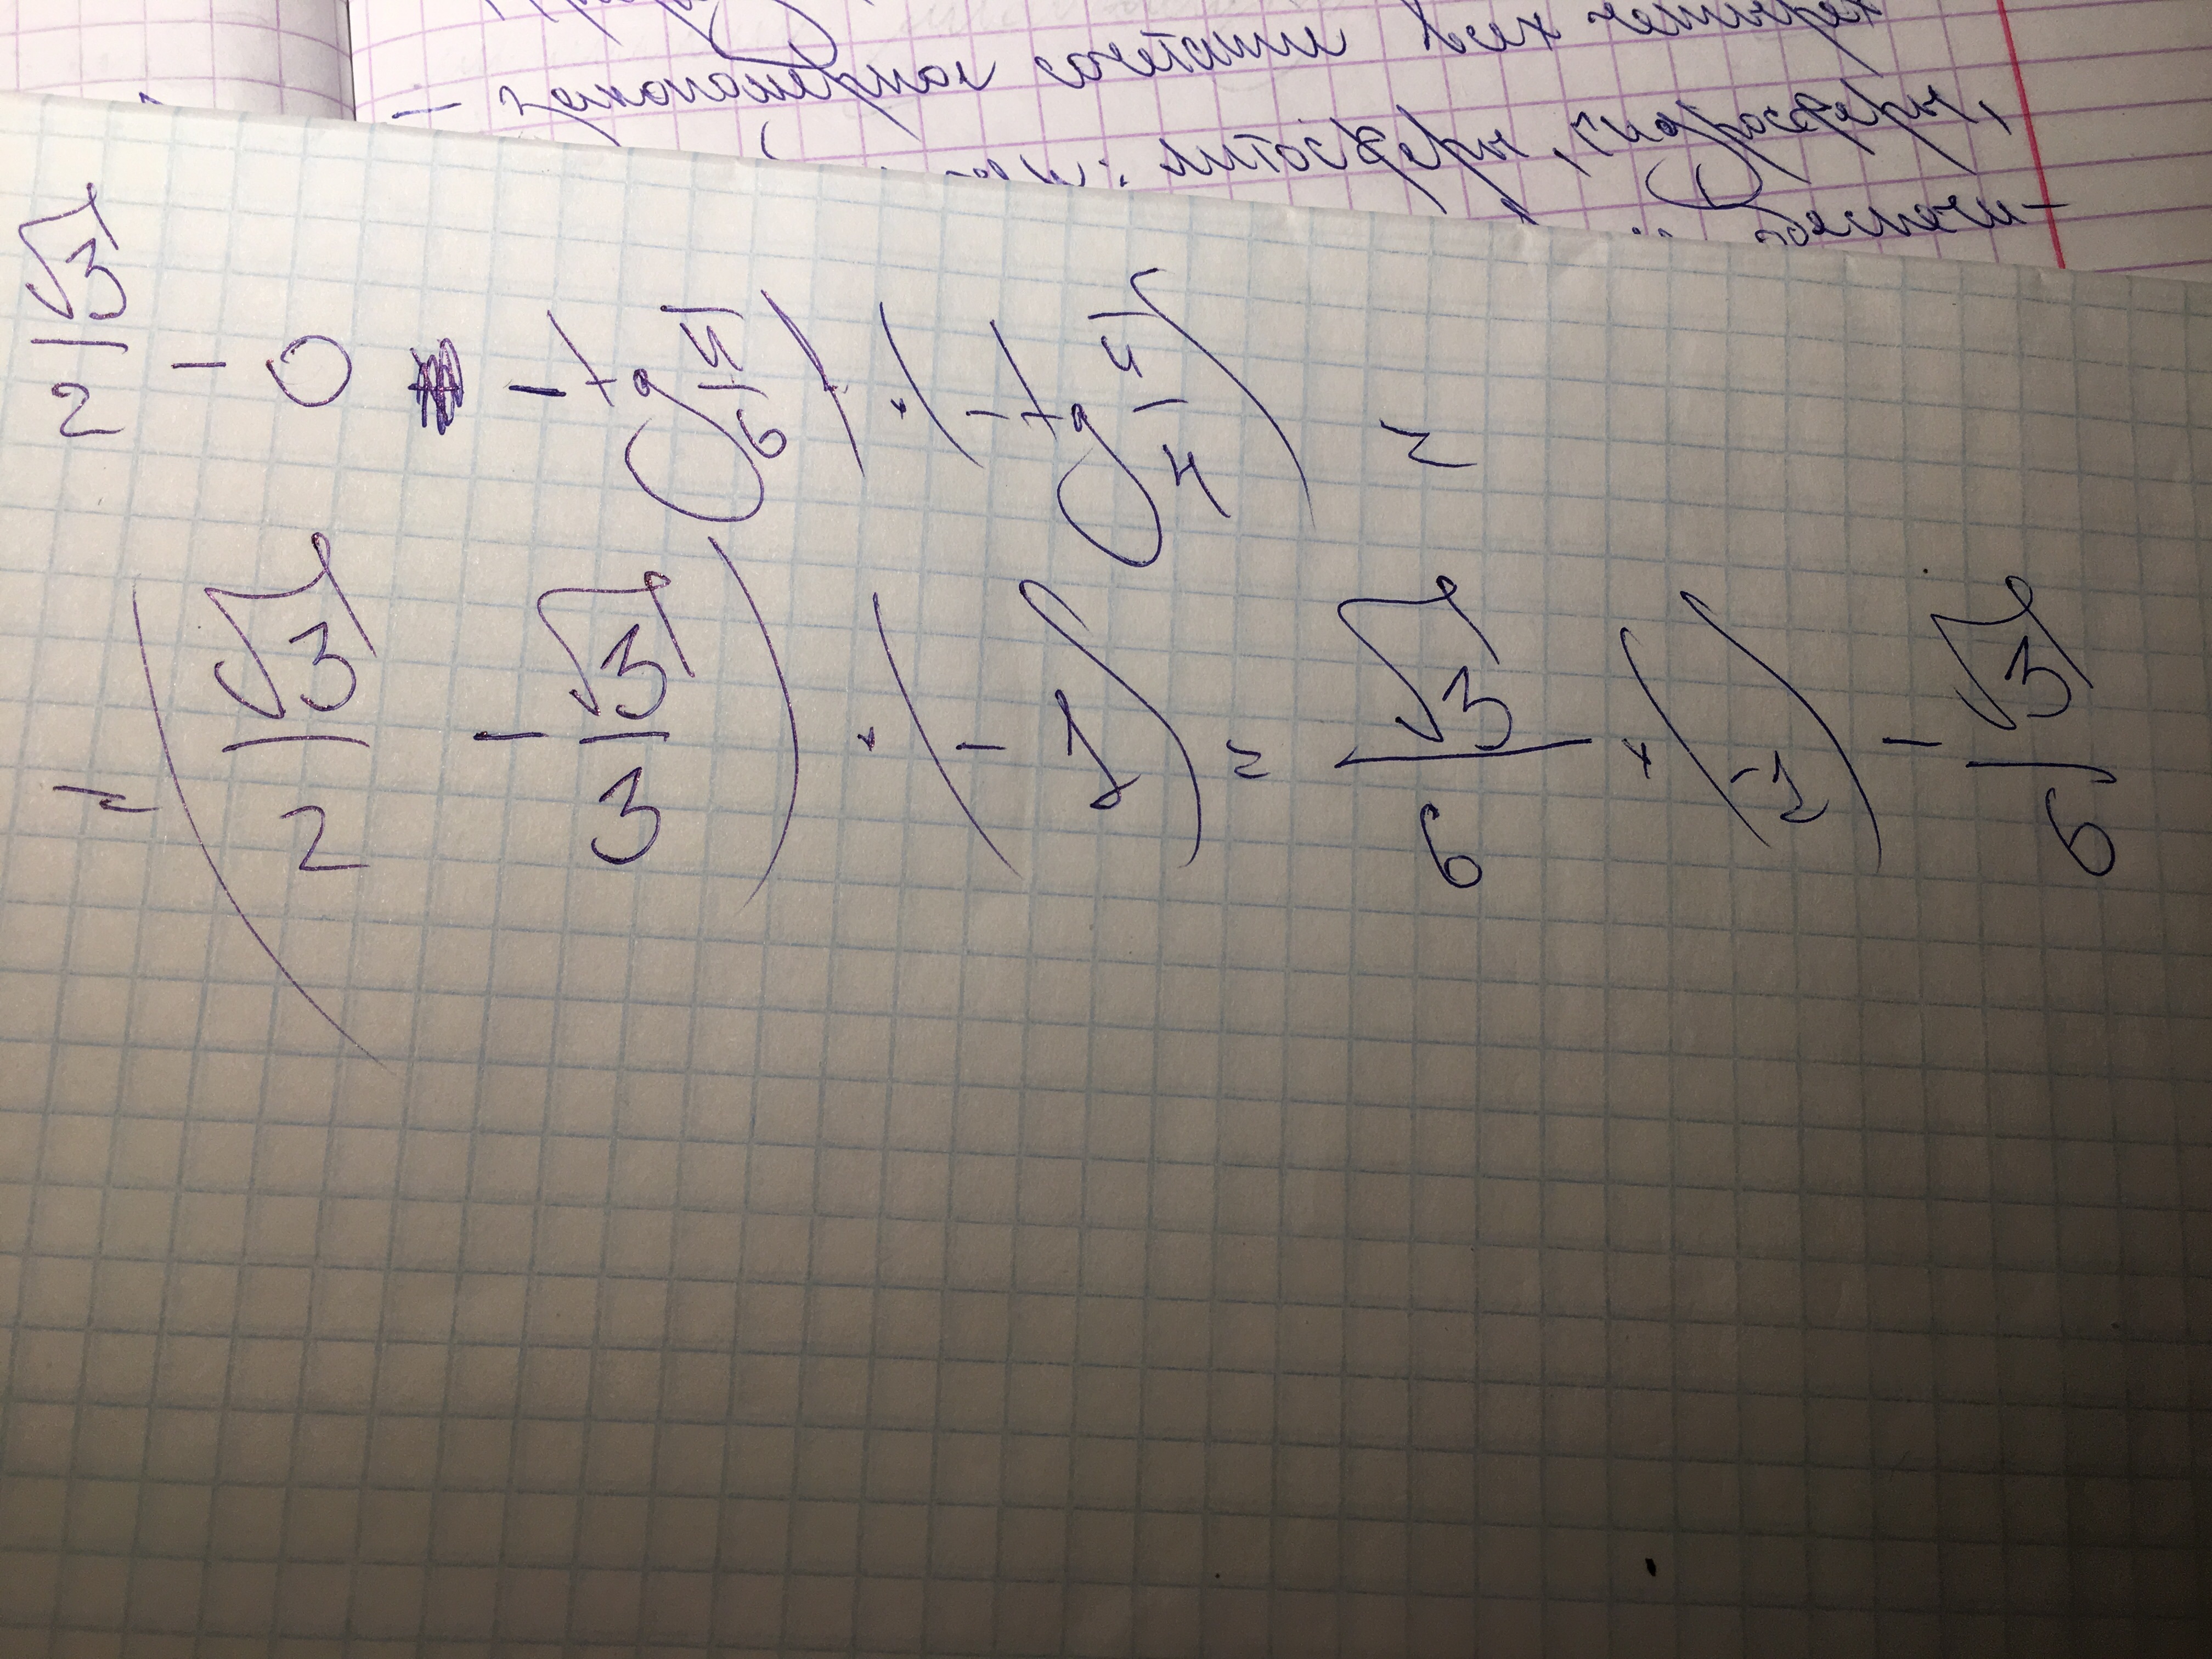 — закономерное сочетание всех четырёх
: литосферы, гидросферы,
√3/2 - 0 - tg π/6) · (- tg π/4) =
= (√3/2 - √3/3) · (-1) = √3/6 · (-1) - √3/6